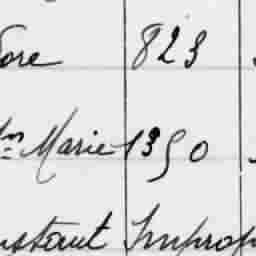 ore 823
Marie 1350
nstant Improp